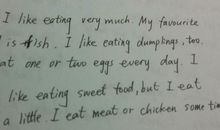 I like eating very much. My favourite
is fish. I like eating dumplings, too.
at one or two eggs every day. I
like eating sweet food, but I eat
a little. I eat meat or chicken some tim